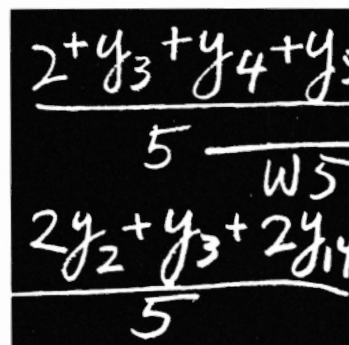 2+y₃+y₄+y
5
W5
2y₂+y₃+2y₁₄
5